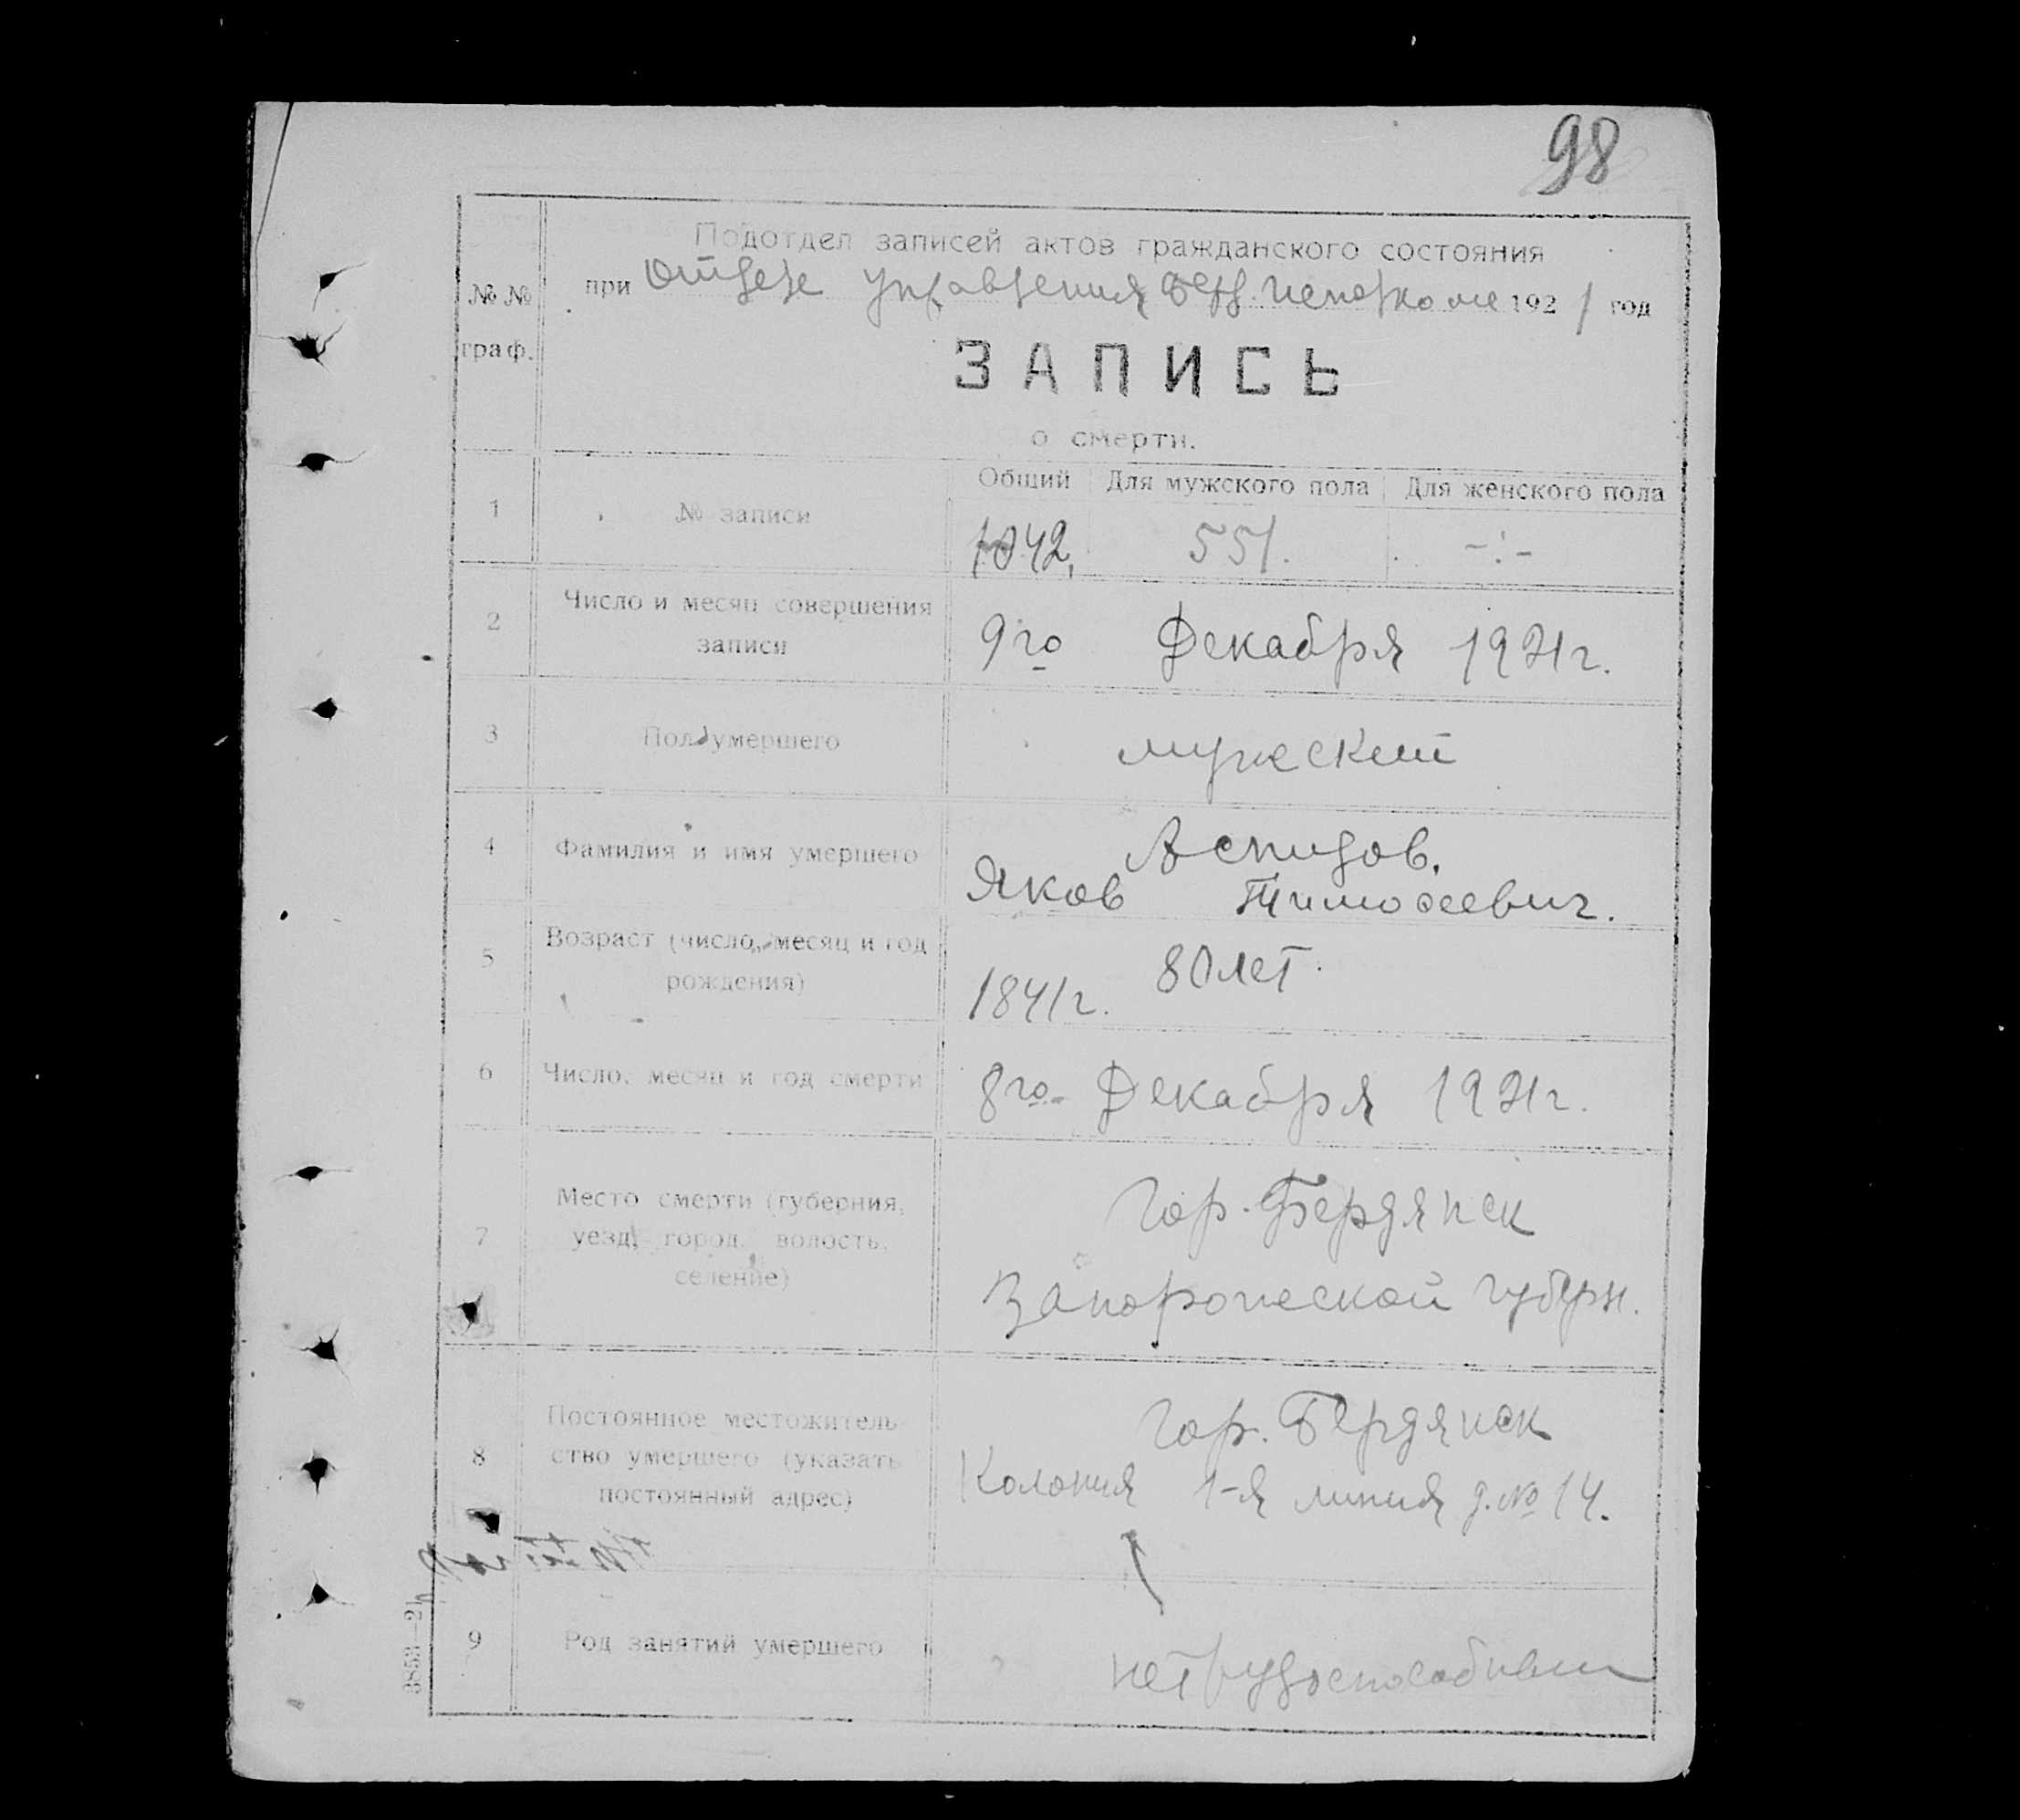 98
Подотдел записей актов гражданского состояния
при Отделе Управления Берд. Исполкоме 1921 год
№№ граф.
ЗАПИСЬ
о смерти.
Общий Для мужского пола Для женского пола
1 № записи 1042. 551. -:-
2 Число и месяц совершения
записи 9го Декабря 1921г.
3 Пол умершего мужской
4 Фамилия и имя умершего Аспидов.
Яков Тимофеевич.
5 Возраст (число, месяц и год
рождения) 80 лет.
1841г.
6 Число, месяц и год смерти 8го Декабря 1921г.
7 Место смерти (губерния,
уезд, город, волость,
селение)
Гор. Бердянск
Запорожской губерн.
8 Постоянное местожитель-
ство умершего (указать
постоянный адрес)
Гор. Бердянск
Колония 1-я линия д. № 14.
9 Род занятий умершего нетрудоспособный
3853—21